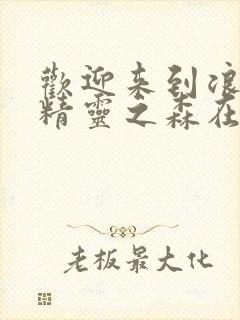 歡迎来到浪
精靈之森在
老板最大化